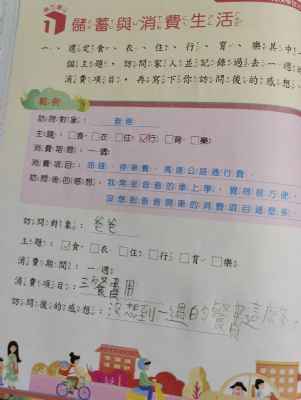 1 儲蓄與消費生活
一、選定食、衣、住、行、育、樂其中
個主題,訪問家人並記錄過去一週
消費項目,再寫下你訪問後的感想
範例
訪問對象:爸爸
主題:□食 □衣 □住 ☑行 □育 □樂
消費期間:一週
消費項目:油錢、停車費、高速公路通行費
訪問後的感想:我常坐爸爸的車上學,覺得很方便,
沒想到爸爸開車的消費項目這麼多
訪問對象:爸爸
主題:☑食 □衣 □住 □行 □育 □樂
消費期間:一週
消費項目:三餐費用
訪問後的感想:沒想到一週的餐費這